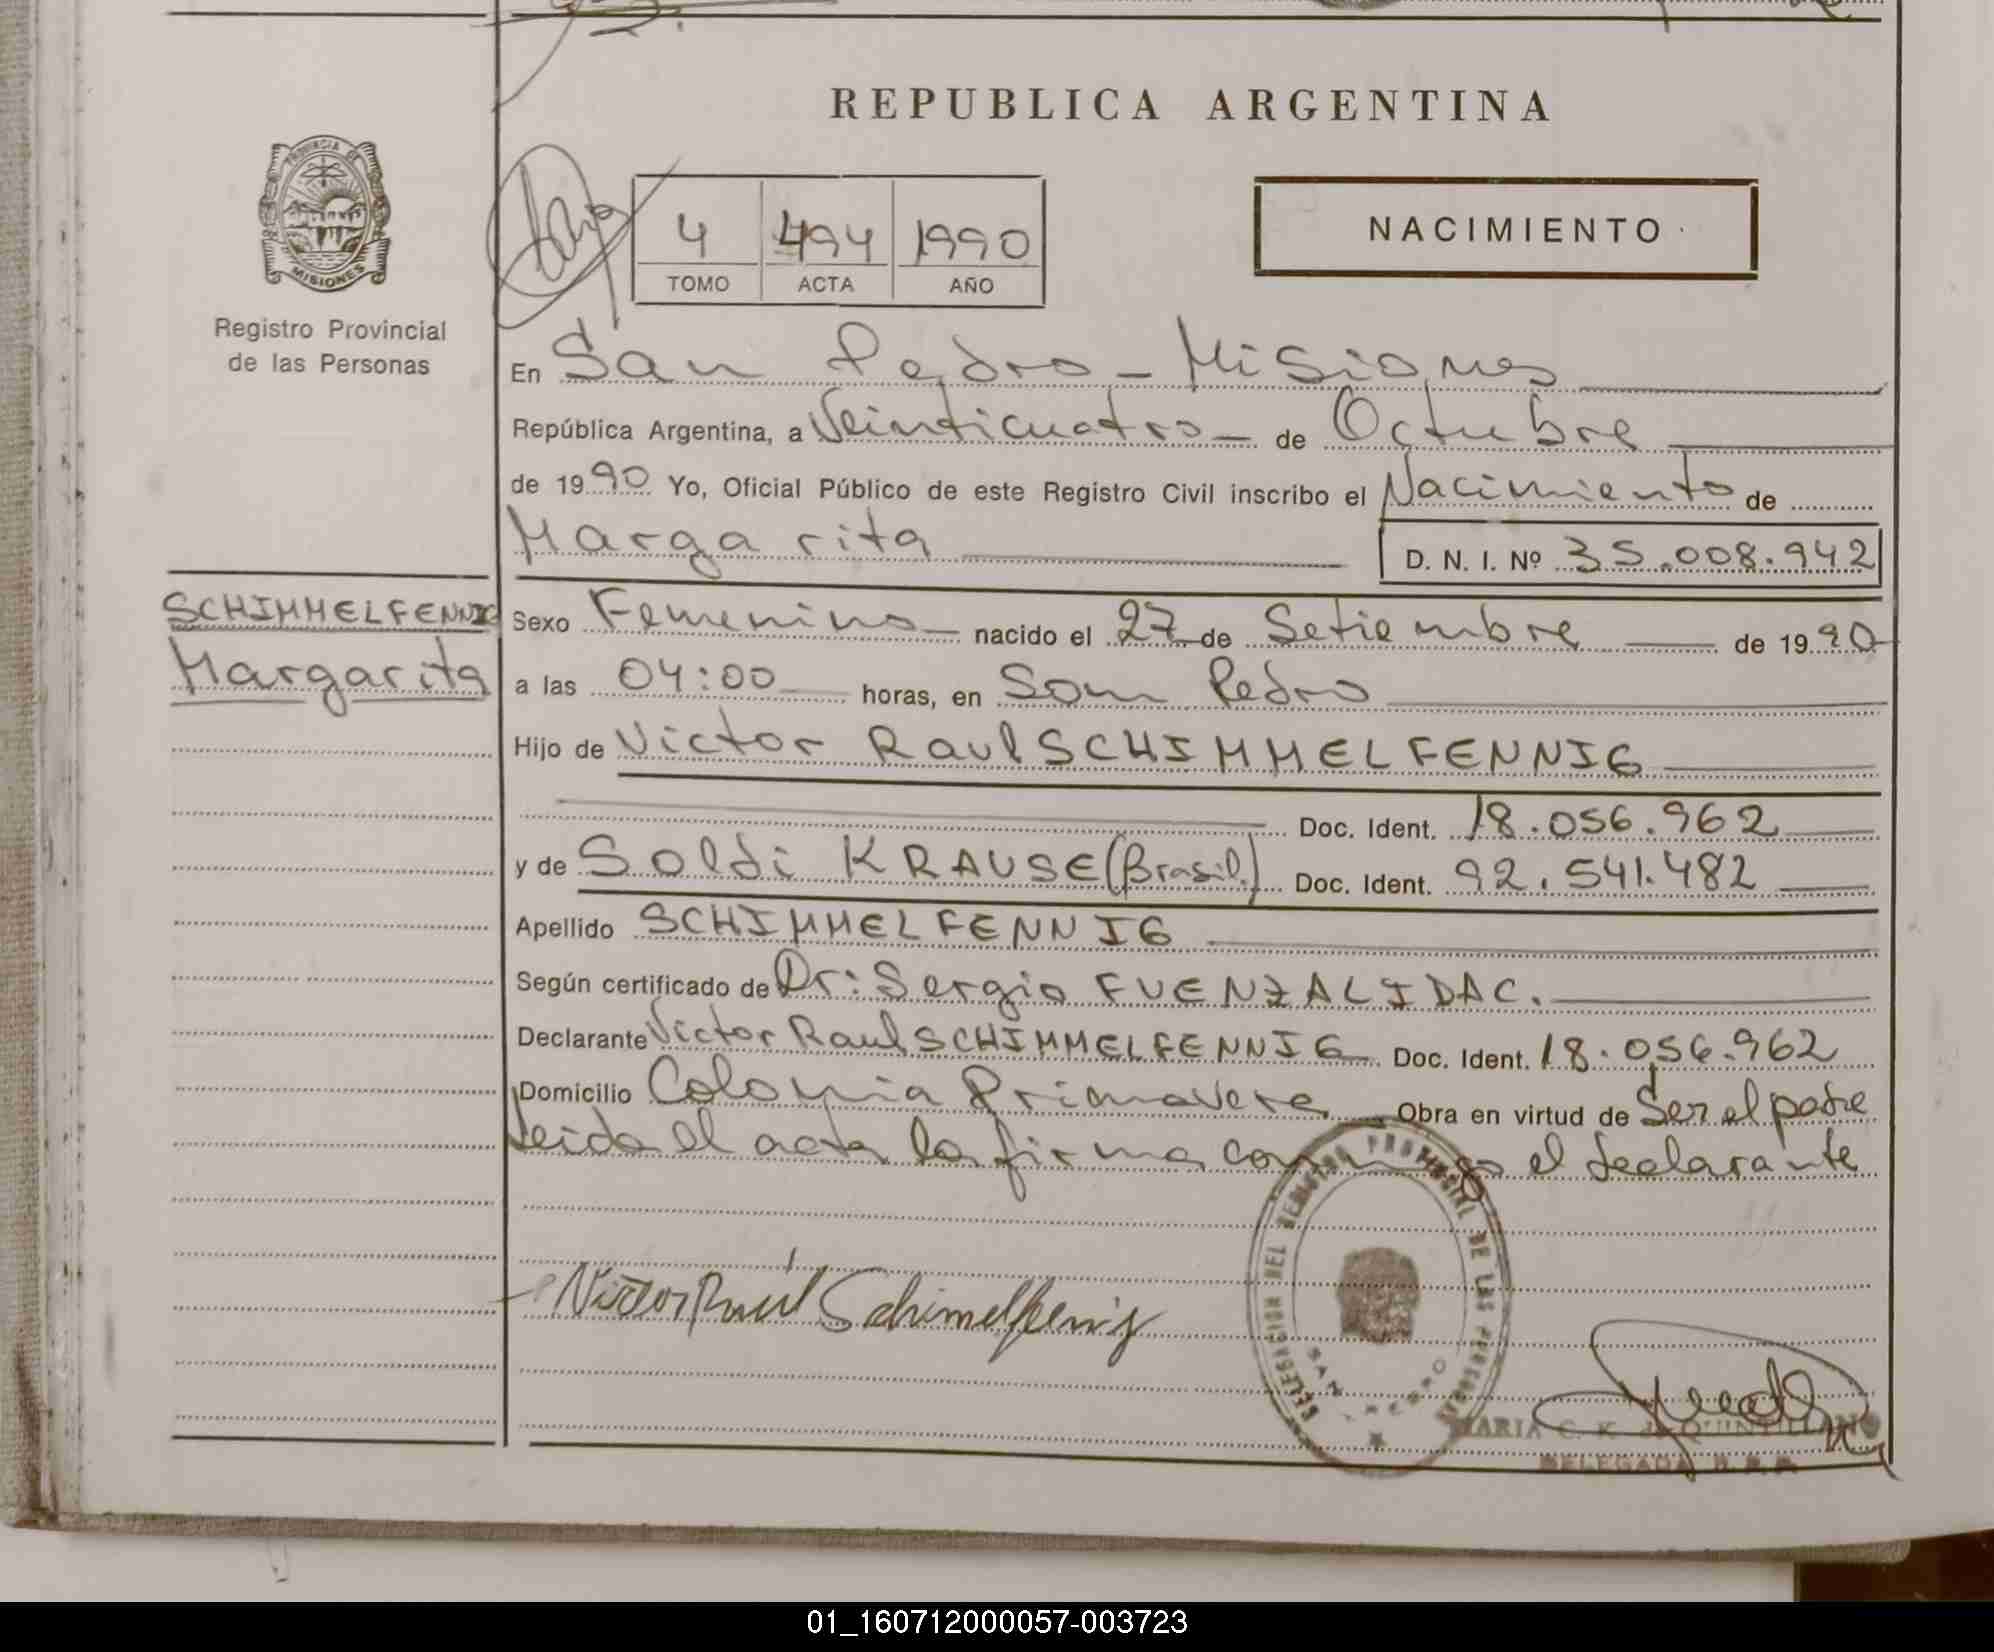 REPUBLICA ARGENTINA
PROVINCIA DE
MISIONES
Registro Provincial
de las Personas
4 494 1990
TOMO ACTA AÑO
NACIMIENTO
En San Pedro - Misiones
República Argentina, a Veinticuatro de Octubre
de 1990 Yo, Oficial Público de este Registro Civil inscribo el Nacimiento de
Margarita D. N. I. Nº 35.008.942
SCHIMMELFENNIG
Margarita
Sexo Femenino nacido el 27 de Setiembre de 1990
a las 04:00 horas, en San Pedro
Hijo de Victor Raul SCHIMMELFENNIG
Doc. Ident. 18.056.962
y de Soldi KRAUSE (Brasil.) Doc. Ident. 92.541.482
Apellido SCHIMMELFENNIG
Según certificado de Dr: Sergio FUENZALIDA C.
Declarante Victor Raul SCHIMMELFENNIG Doc. Ident. 18.056.962
Domicilio Colonia Primavera Obra en virtud de Ser el padre
Leida el acta la firma conmigo el declarante
DELEGACION DEL REGISTRO PROVINCIAL DE LAS PERSONAS
SAN PEDRO
Victor Raúl Schimelfenig
MARIA C. K. de QUINTILLANO
DELEGADA R. P. P.
01_160712000057-003723